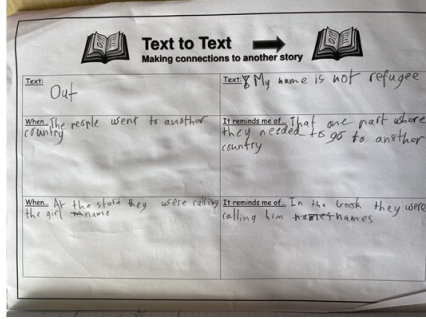 Text to Text
Making connections to another story
Text:
Out
Text: My name is not refugee
When The people went to another
country
It reminds me of... That one part where
they needed to go to another
country
When At the start they were calling
the girl name
It reminds me of... In the book they were
calling him names